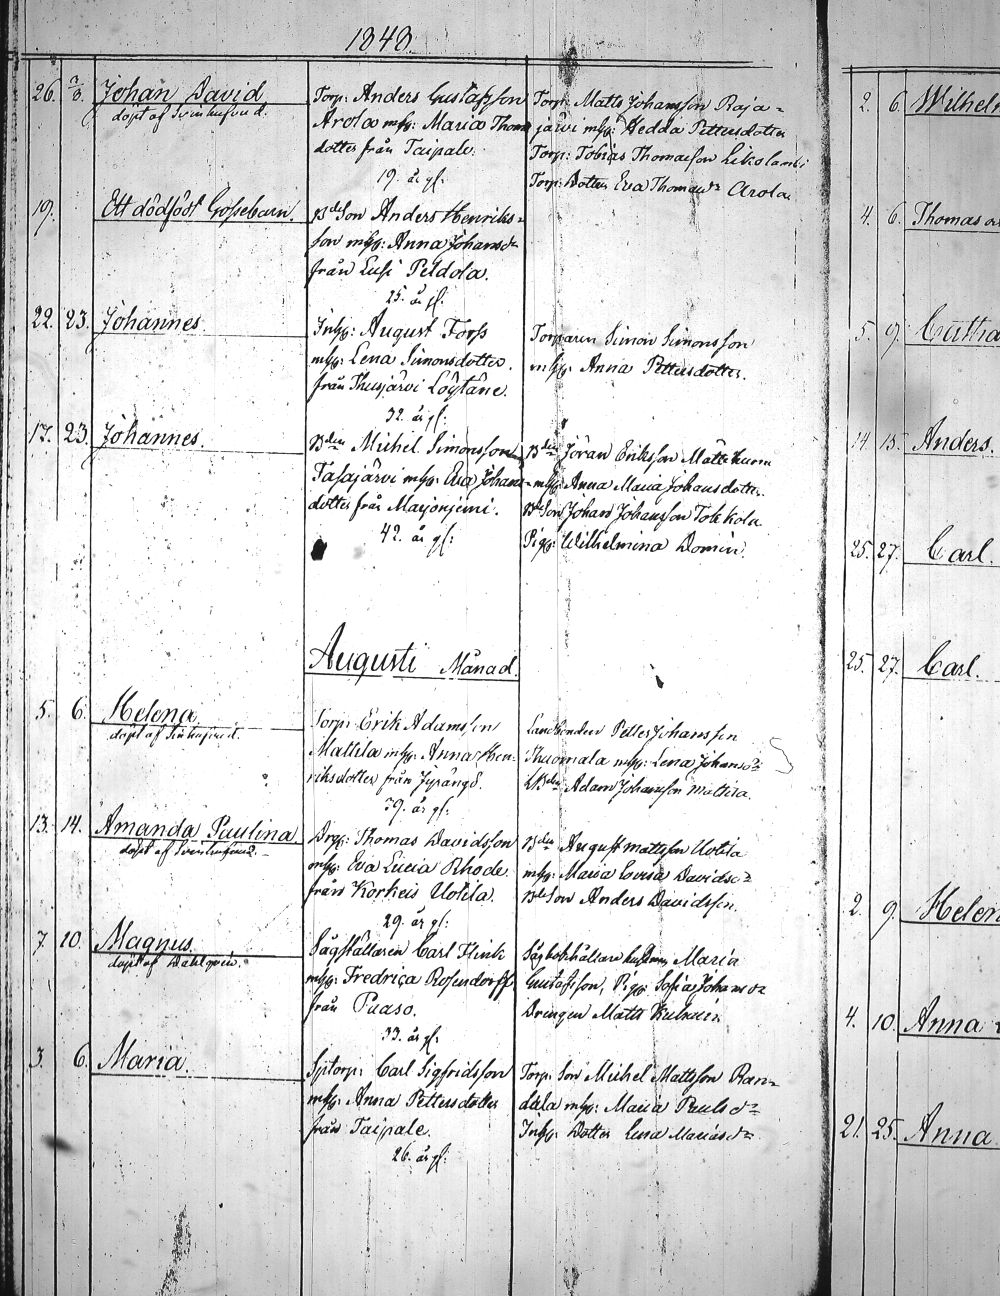 1848.
26. 7/8. Johan David
döpt af Svinhufvud.
Torp: Anders Gustafsson
Arola m hu: Maria Thoms
dotter från Taipale.
19. år gl:
Torp: Matts Johansson Raja-
järvi m hu: Hedda Pettersdotter
Torp: Tobias Thomasson Likolamb:
Torp: Dotter Eva Thomasdr Arola
19. Ett dödfödt Gossebarn.
BdeSon Anders Henriks-
son m hu: Anna Johansdr
från Lusi Peldola.
25. år gl:
22. 23. Johannes
Inhy: August Forss
m hu: Lena Simonsdotter.
från Thusjärvi Löytäne.
32. år gl:
Torparen Simon Simonsson
m hu: Anna Pettersdotter.
17. 23. Johannes.
Bden Michel Simonsson
Tasajärvi m hu: Eva Johans-
dotter från Marjoniemi.
42. år gl:
Bden Jöran Eriksson
m hu: Anna Maria Johansdotter.
BdeSon Johan Johansson Tokkola
Pig: Wilhelmina Domin.
Augusti Månad.
5. 6. Helena.
döpt af Svinhufvud.
Torp: Erik Adamsson
Mattila m hu: Anna Hen-
riksdotter från Jyrängö.
39. år gl:
Landbonden Petter Johansson
Thuomala m hu: Lena Johansdr
Adam Johansson Mattila.
13. 14. Amanda Paulina
döpt af Svinhufvud.
Drg: Thomas Davidsson
m hu: Eva Lucia Rhode.
från Korkeis Uotila.
29. år gl:
Bden August Mattsson Uotila
m hu: Maria Lovisa Davidsdr
BdeSon Anders Davidsson.
7. 10. Magnus.
döpt af Dahlqvist.
Sågställaren Carl Flink
m hu: Fredrica Rosendorff
från Puaso.
33. år gl:
Sågbokhållare hustrun Maria
Gustafsson, Pigo: Sofia Johansdr
Drängen Matts
3. 6. Maria.
Sptorp: Carl Sigfridsson
m hu: Anna Pettersdotter
från Taipale.
26. år gl:
Torp: Son Michel Mattsson Ran-
dala m hu: Maria Paulsdr
Inhy: Dotter Lena Mariasdr
2. 6. Wilhelm
4. 6. Thomas
5. 9. Catha
14. 15. Anders.
25. 27. Carl.
25. 27. Carl.
2. 9. Helen
4. 10. Anna
21. 25. Anna